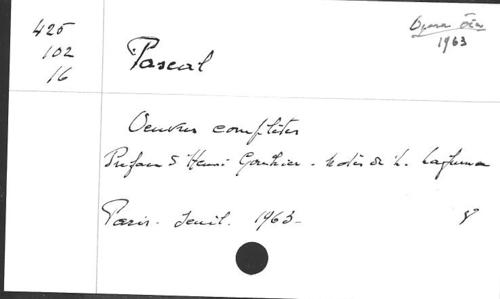 425
102
16
Opera Oia
1963
Pascal
Oeuvres complètes
Préface d'Henri Gouhier. Notes de L. Lafuma
Paris. Seuil. 1963.
8°